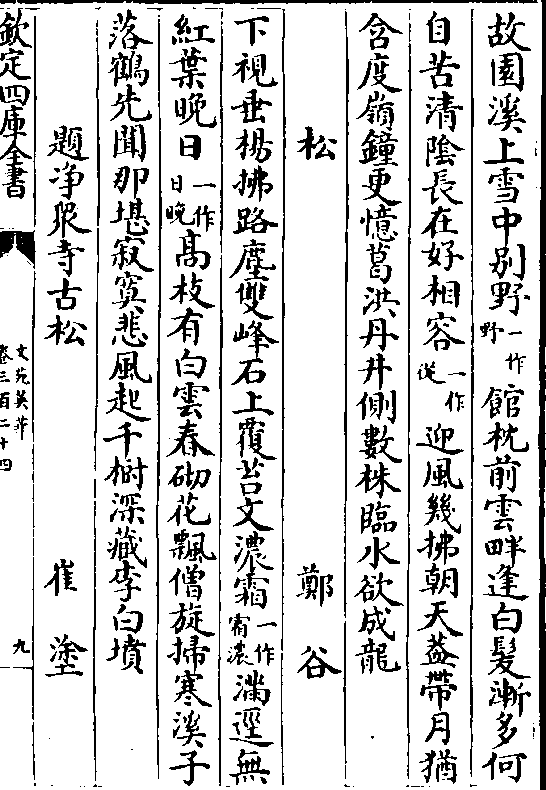 故園溪上雪中别野一作野館枕前雲畔逢白髮漸多何
自苦清隂長在好相容一作從迎風幾拂朝天葢帶月猶
含度嶺鐘更憶葛洪丹井側數株臨水欲成龍
松 鄭谷
下視垂楊拂路塵雙峰石上覆苔文濃霜一作霜濃滿逕無
紅葉晚日一作日晚髙枝有白雲春砌花飄僧旋掃寒溪子
落鶴先聞那堪寂寞悲風起千樹深藏李白墳
題浄眾寺古松 崔塗
欽定四庫全書
文苑英華
卷三百二十四
九